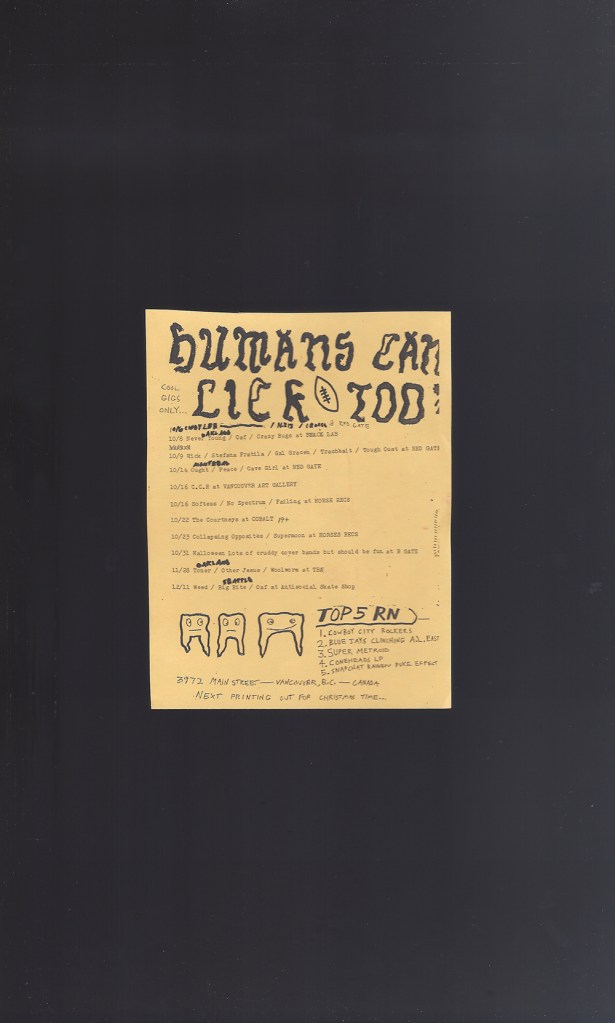 HUMANS CAN
LICK TOO?
COOL
GIGS
ONLY...
10/6 CINDY LEE
OAKLAND
10/8 Never Young / Caf / Crazy Bugs at BEACK LAB
10/9 Nick / Stefana Fratila / Gal Gracen / Trashbait / Tough Cust at RED GATE
MONTREAL
10/14 Ought / Peace / Cave Girl at RED GATE
10/16 C.C.R at VANCOUVER ART GALLERY
10/16 Softess / No Spectrum / Failing at HORSE RECS
10/22 The Courtneys at COBALT 19+
10/23 Collapsing Opposites / Supermoon at HORSES RECS
10/31 Halloween Lots of cruddy cover bands but should be fun at R GATE
OAKLAND
11/28 Toner / Other Jesus / Woolworm at TBK
SEATTLE
12/11 Weed / Big Bite / Caf at Antisocial Skate Shop
TOP 5 RN
1. COWBOY CITY ROCKERS
2. BLUE JAYS CLINCHING A.L. EAST
3. SUPER METROID
4. CONEHEADS LP
5. SNAPCHAT RAINBOW PUKE EFFECT
3972 MAIN STREET — VANCOUVER, B.C. — CANADA
NEXT PRINTING OUT FOR CHRISTMAS TIME...